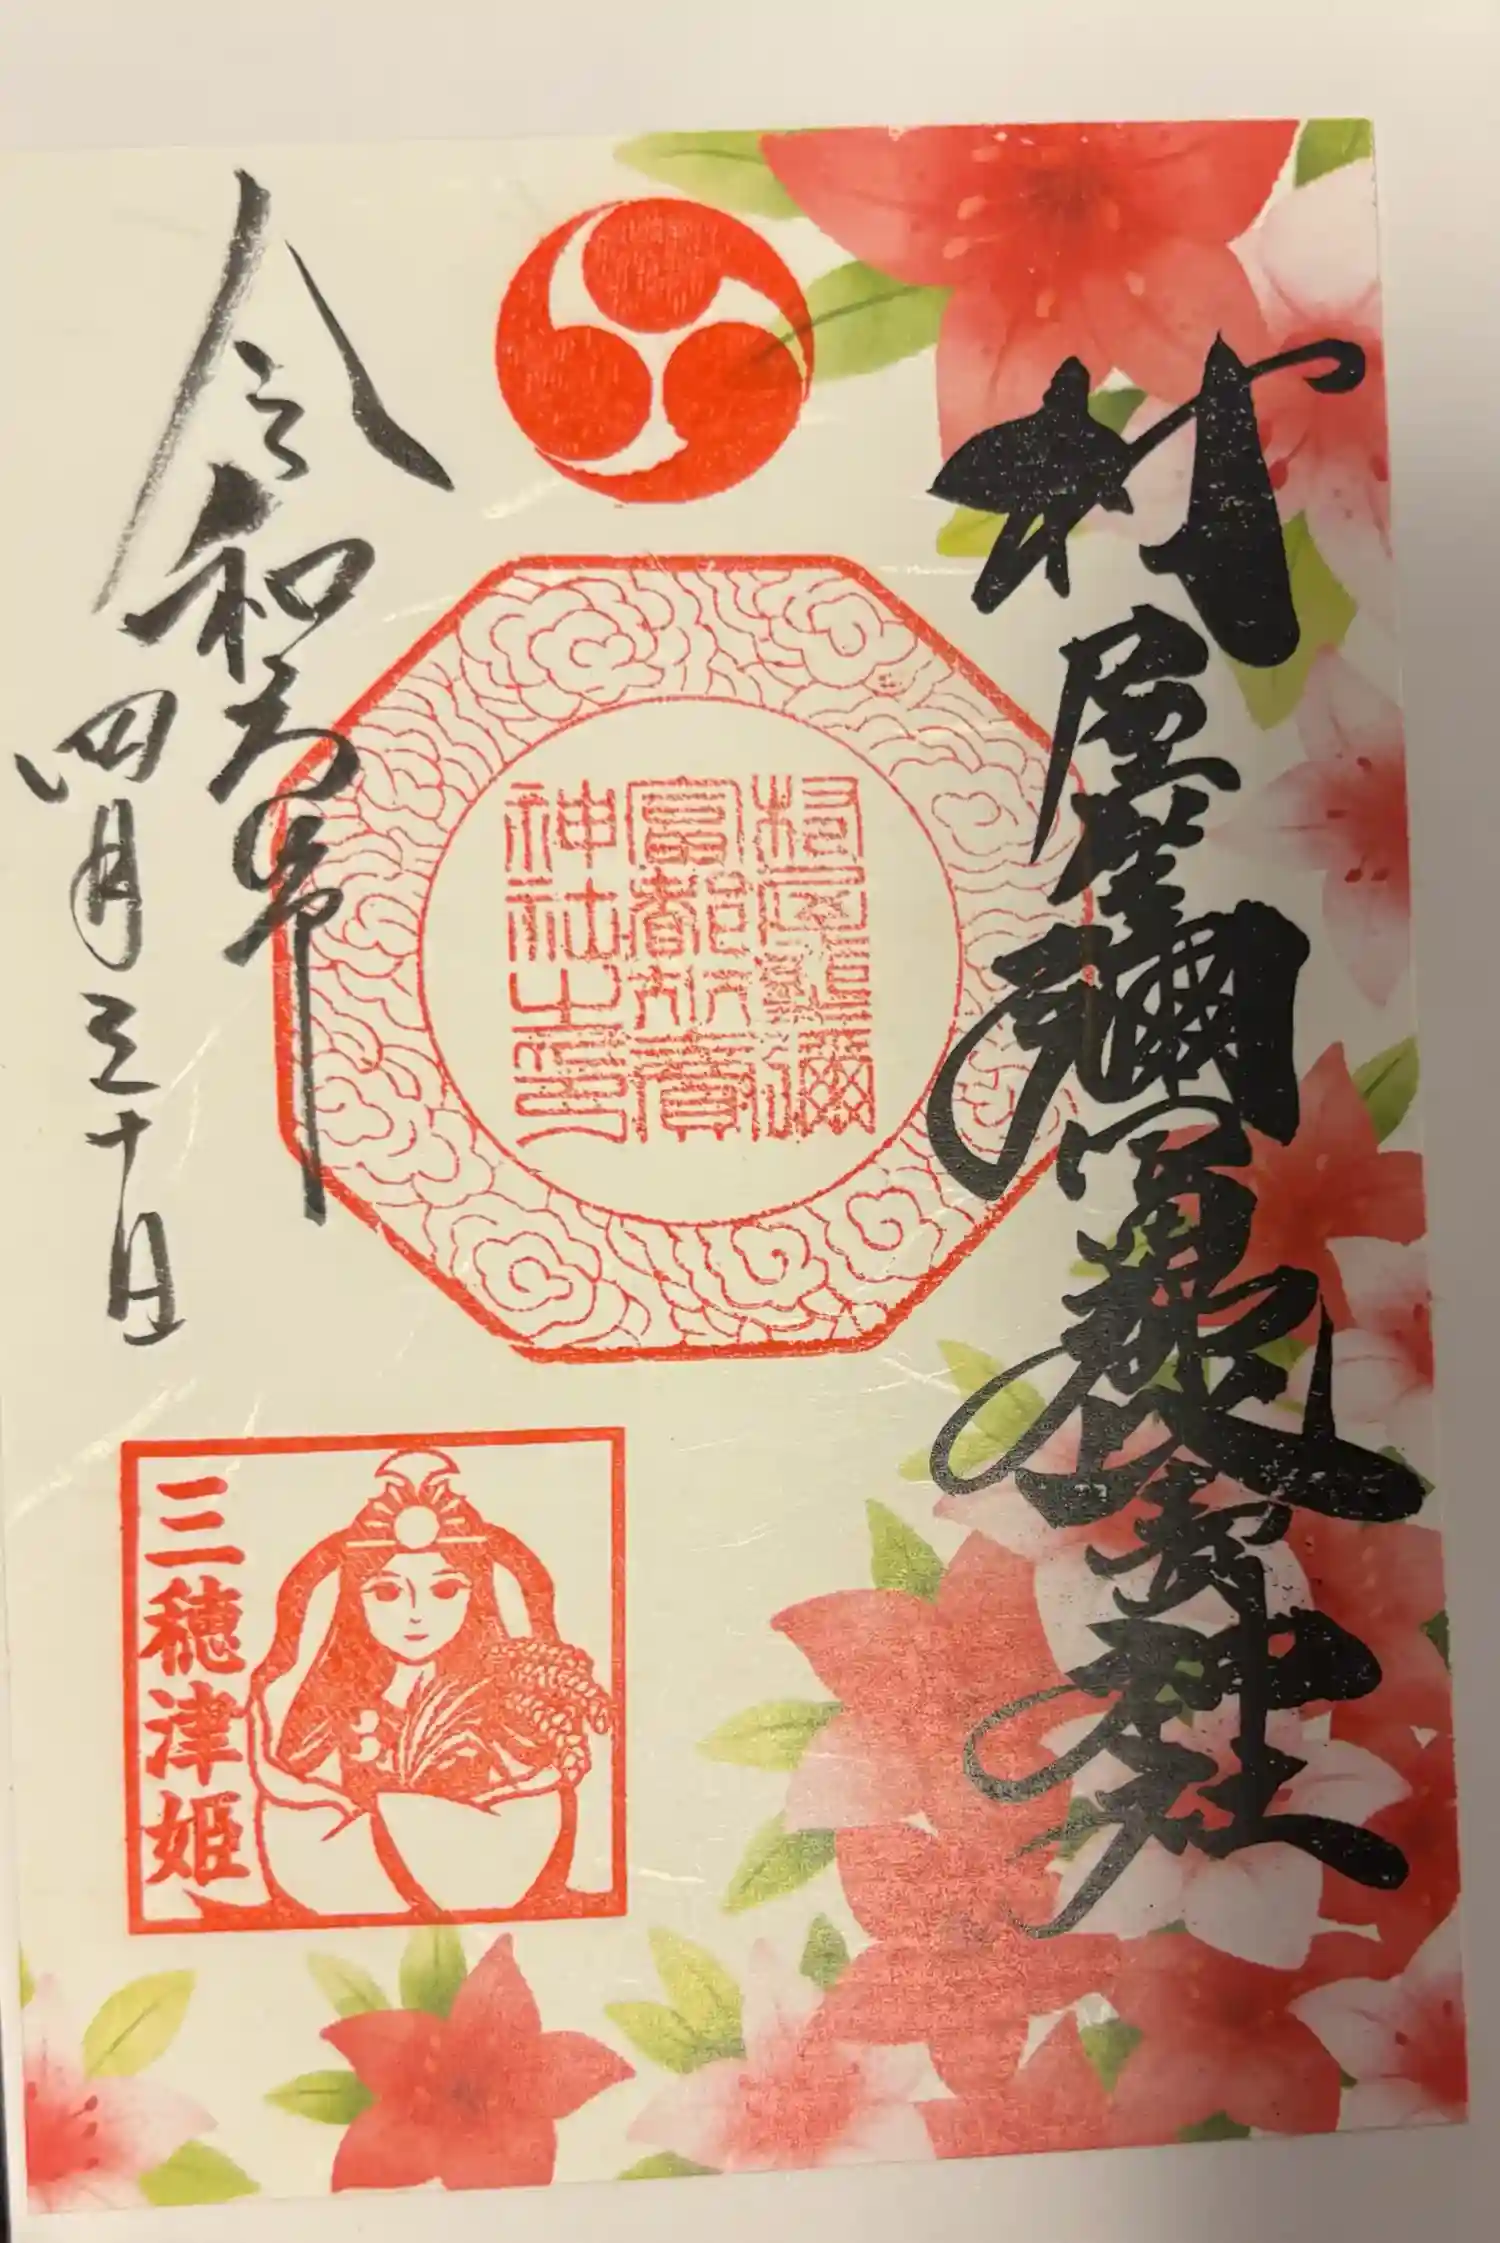 村屋坐彌冨都比賣神社
村屋坐彌
富都比賣
神社之印
令和六年
四月三十日
三穂津姫